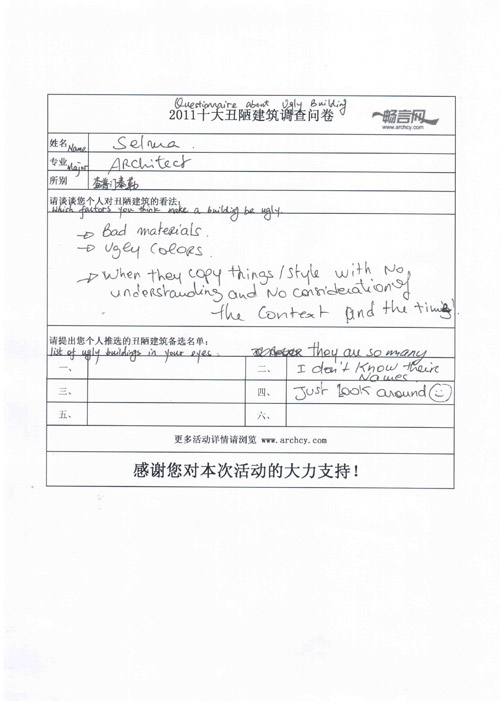 Questionnaire about Ugly Building
2011十大丑陋建筑调查问卷
畅言网
www.archcy.com
姓名 Name Selma.
专业 Major Architect
所别
请谈谈您个人对丑陋建筑的看法：
which factors you think make a building be ugly.
→ Bad materials.
→ Ugly Colors.
→ When they copy things/style with No
understanding and No consideration of
the context and the time!
请提出您个人推选的丑陋建筑备选名单：
list of ugly buildings in your eyes. they are so many
一、 二、 I don't know their
Names.
三、 四、 Just look around ☺
五、 六、
更多活动详情请浏览 www.archcy.com
感谢您对本次活动的大力支持！